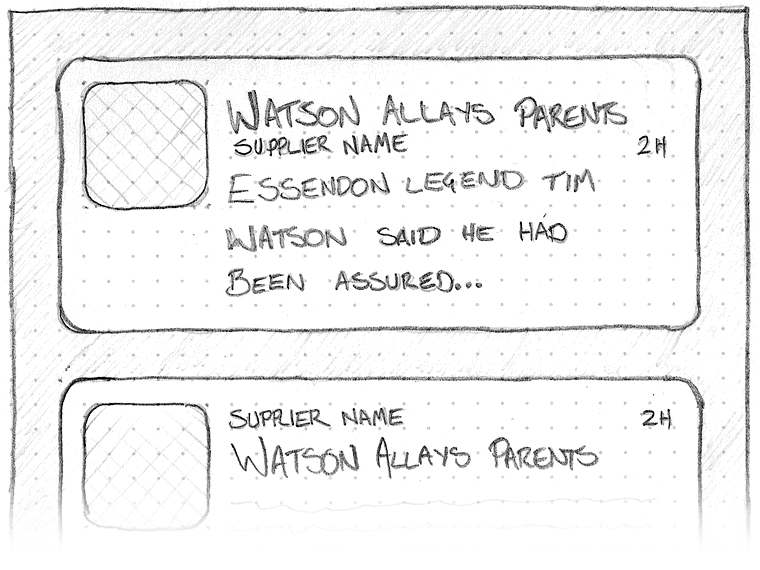 WATSON ALLAYS PARENTS
SUPPLIER NAME 2H
ESSENDON LEGEND TIM
WATSON SAID HE HAD
BEEN ASSURED...
SUPPLIER NAME 2H
WATSON ALLAYS PARENTS